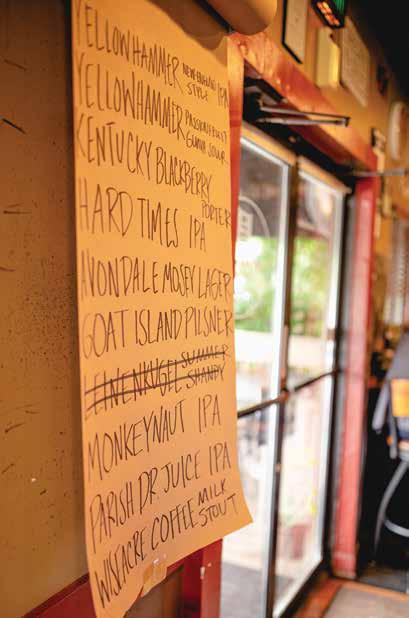 YELLOWHAMMER NEW ENGLAND STYLE IPA
YELLOWHAMMER PASSIONFRUIT GUAVA SOUR
KENTUCKY BLACKBERRY PORTER
HARD TIMES IPA
AVONDALE MOSEY LAGER
GOAT ISLAND PILSNER
LEINENKUGEL SUMMER SHANDY
MONKEYNAUT IPA
PARISH DR JUICE IPA
WISEACRE COFFEE MILK STOUT